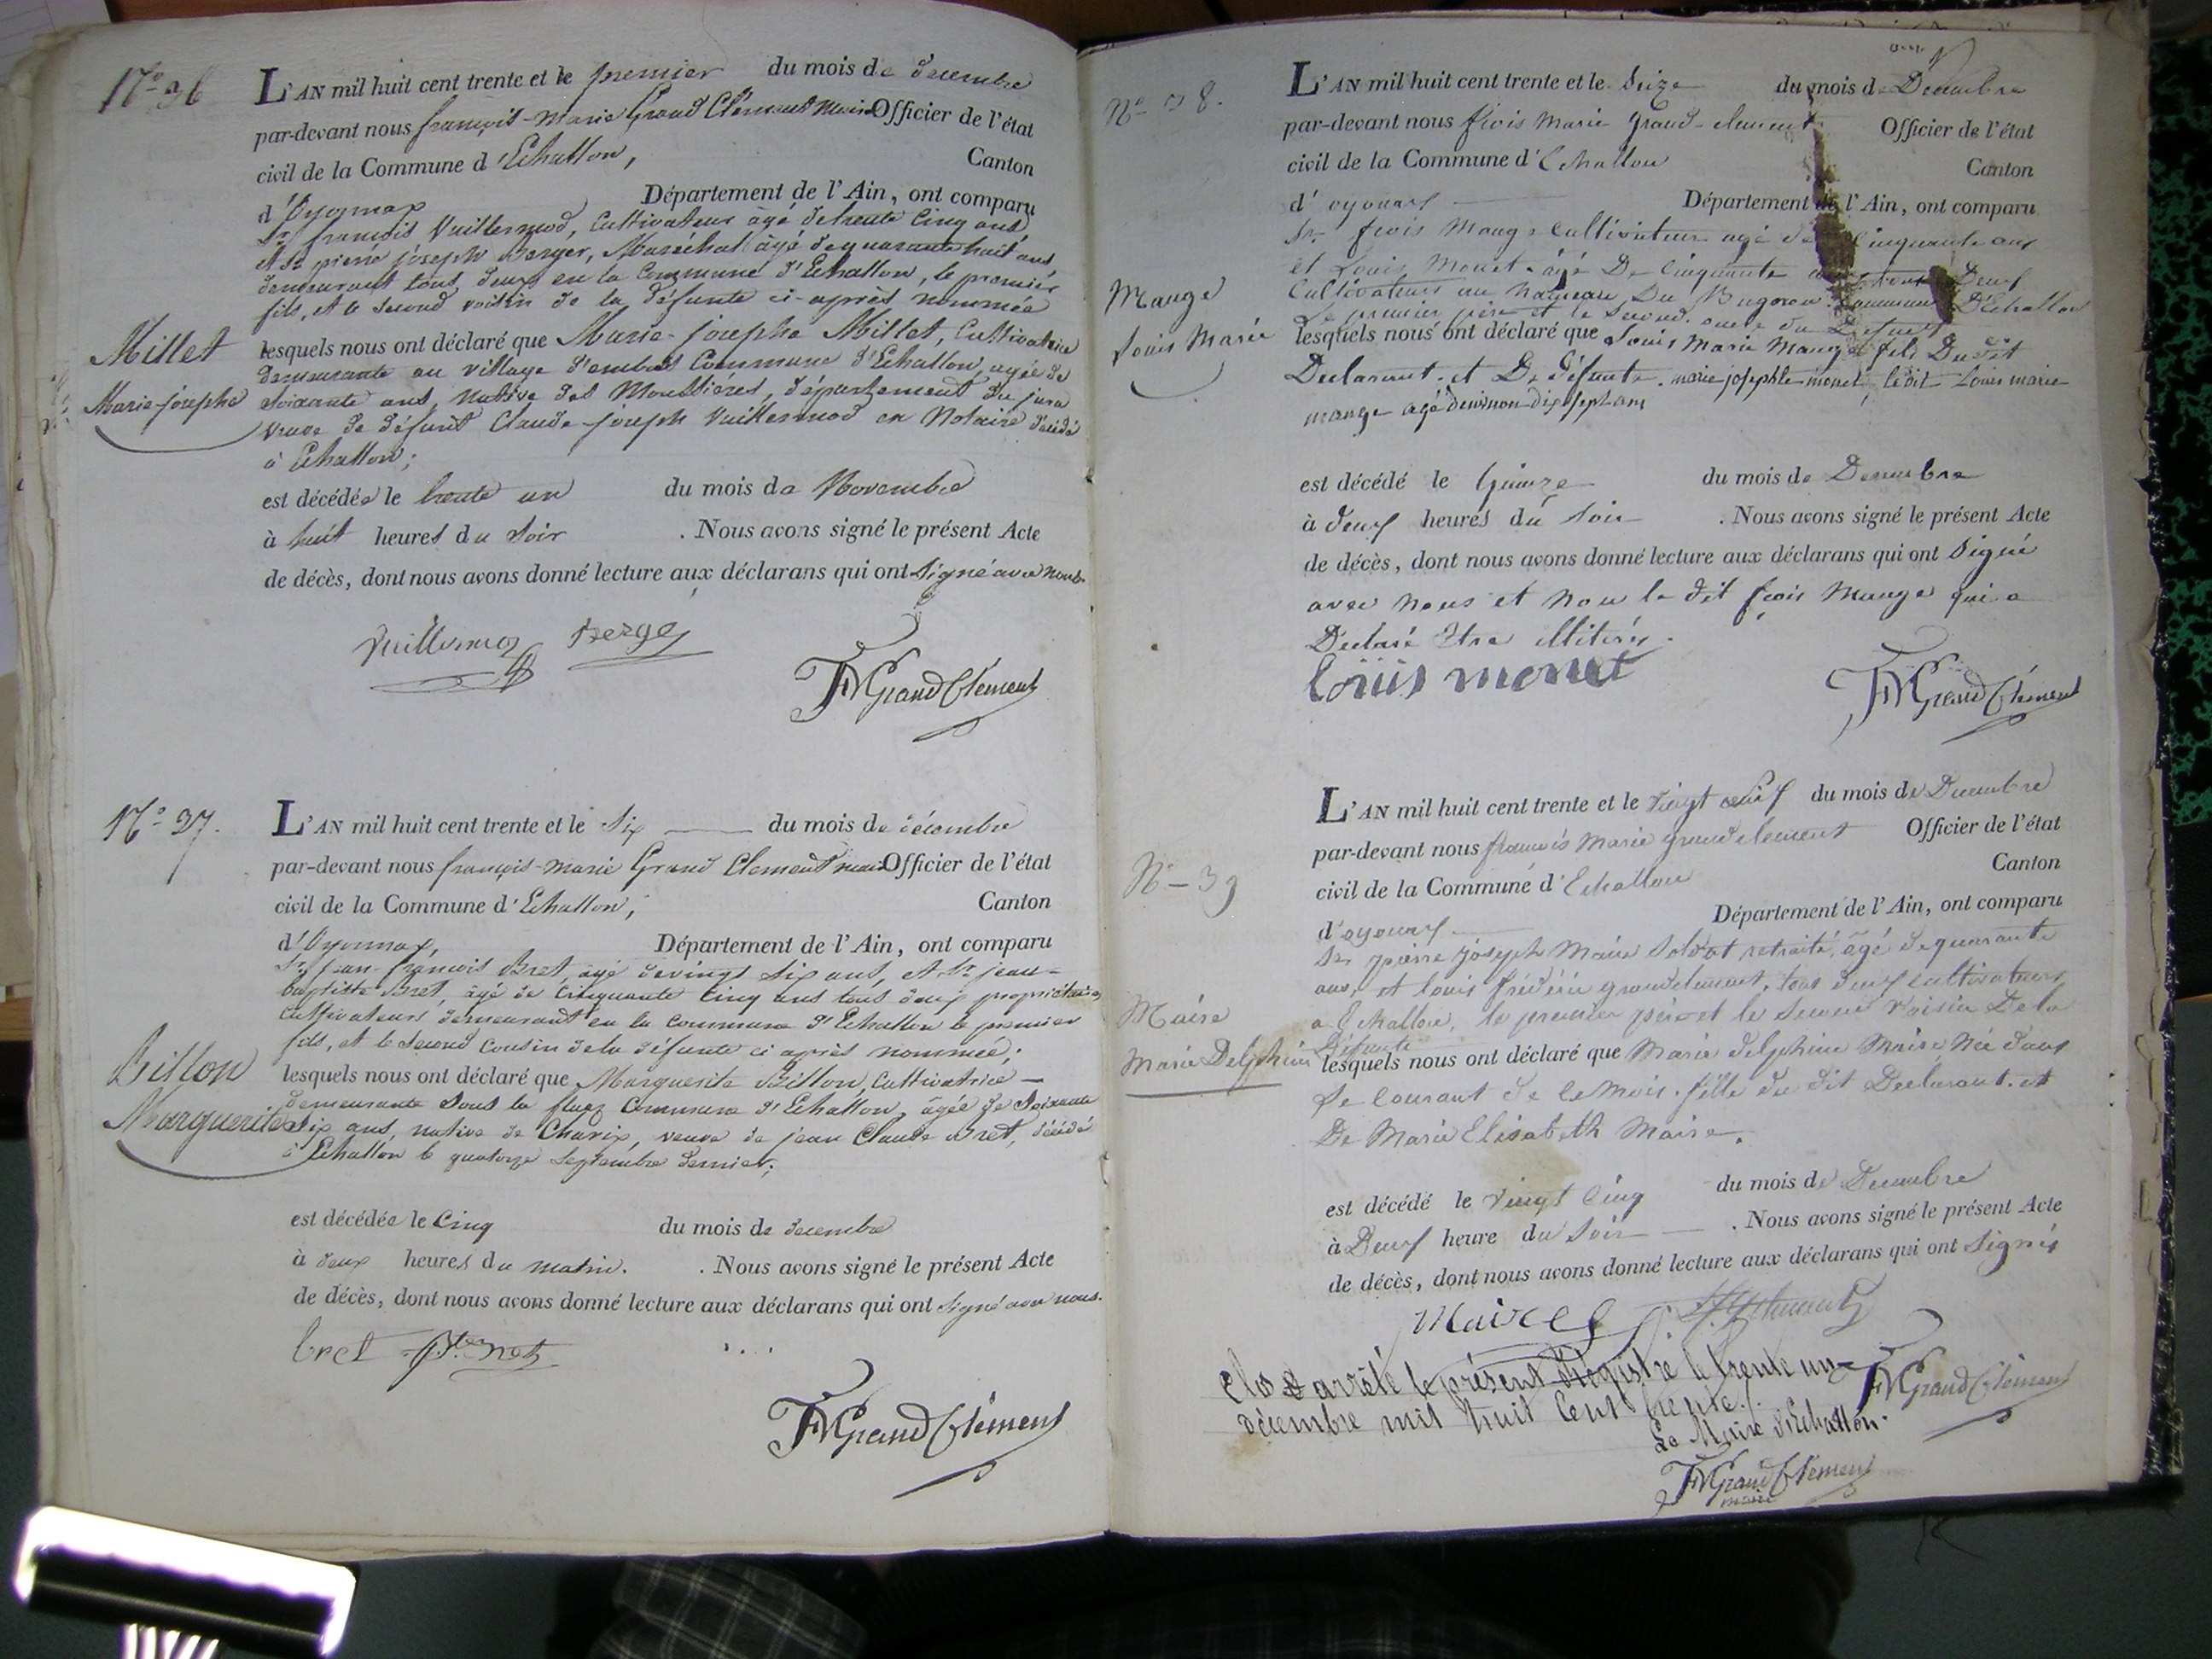 N.o 36
L'AN mil huit cent trente et le premier du mois de decembre
par-devant nous françois-marie Grand Clément Maire Officier de l'état
civil de la Commune d'Echallon, Canton
d'Oyonnax Département de l'Ain, ont comparu
Sr. françois Vuillermod, Cultivateur âgé de trente cinq ans
et Sr. pierre joseph Berger, Maréchal âgé de quarante huit ans
demeurant tous deux en la Commune d'Echallon, le premier
fils, et le second voisin de la défunte ci-après nommée
Millet
Marie-josephe
lesquels nous ont déclaré que Marie-josephe Millet, Cultivatrice
demeurante au village d'ombres Commune d'Echallon, agée de
soixante ans, native des Moussières, département du jura
veuve de défunt Claude-joseph Vuillermod en Notaire décédé
à Echallon;
est décédée le trente un du mois de Novembre
à huit heures du Soir . Nous avons signé le présent Acte
de décès, dont nous avons donné lecture aux déclarans qui ont Signé avec nous
Vuillermoz Berger
FMGrandClément
N.o 37.
L'AN mil huit cent trente et le Six du mois de décembre
par-devant nous françois-marie Grand Clement maire Officier de l'état
civil de la Commune d'Echallon, Canton
d'Oyonnax, Département de l'Ain, ont comparu
Sr. jean-françois Bret, âgé de vingt six ans, et Sr. jean-
baptiste Bret, âgé de Cinquante Cinq ans tous deux propriétaires
Cultivateurs demeurant en la commune d'Echallon le premier
fils, et le Second Cousin de la défunte ci après nommée;
Billon
Marguerite
lesquels nous ont déclaré que Marguerite Billon, Cultivatrice
demeurante Sous la flaez Commune d'Echallon, âgée de Soixante
Six ans, native de Charix, veuve de jean Claude Bret, décédé
à Echallon le quatorze Septembre dernier;
est décédée le Cinq du mois de decembre
à deux heures du matin. . Nous avons signé le présent Acte
de décès, dont nous avons donné lecture aux déclarans qui ont Signé avec nous.
bret
FMGrandClément
N.o 38.
L'AN mil huit cent trente et le Seize du mois de Décembre
par-devant nous frois Marie Grand-clement Officier de l'état
civil de la Commune d'Echallon Canton
d'oyonax Département de l'Ain, ont comparu
Sr. frois Mauge Cultivateur agé de Cinquante ans
et Louis Monet âgé De Cinquante Deux
Cultivateurs au hameau Du Commune D'Echallon
Le premier père et le Second oncle du Defunt
Mauge
Louis Marie
lesquels nous ont déclaré que Louis Marie Mauge fils Du dit
Declarant et De défunte marie josephte monet, ledit Louis marie
mange agé denviron dix sept ans
est décédé le Quinze du mois de Decembre
à deux heures du soir . Nous avons signé le présent Acte
de décès, dont nous avons donné lecture aux déclarans qui ont Signé
avec nous et non le dit frois Mauge qui a
Declaré Etre illitéré.
louis monet
FMGrandClément
N.o 39
L'AN mil huit cent trente et le vingt du mois de Decembre
par-devant nous françois Marie grandclement Officier de l'état
civil de la Commune d'Echallon Canton
d'oyonax Département de l'Ain, ont comparu
Sr. pierre joseph Maire Soldat retraité, âgé de quarante
ans, et louis frédéric grandclement, tous deux cultivateurs
a Echallon, le premier père et le Second Voisin De la
Défunte
Maire
Marie Delphine
lesquels nous ont déclaré que Marie delphine Maire Née dans
Le Courant de ce Mois. fille du dit Declarant et
De Marie Elisabeth Maire.
est décédé le vingt Cinq du mois de Decembre
à Deux heure du Soir . Nous avons signé le présent Acte
de décès, dont nous avons donné lecture aux déclarans qui ont Signés
Maire
Clos et arrêté le présent Régistre le trente un
décembre mil huit Cent trente.
FMGrandClément
Le Maire d'Echallon.
FMGrandClément
maire